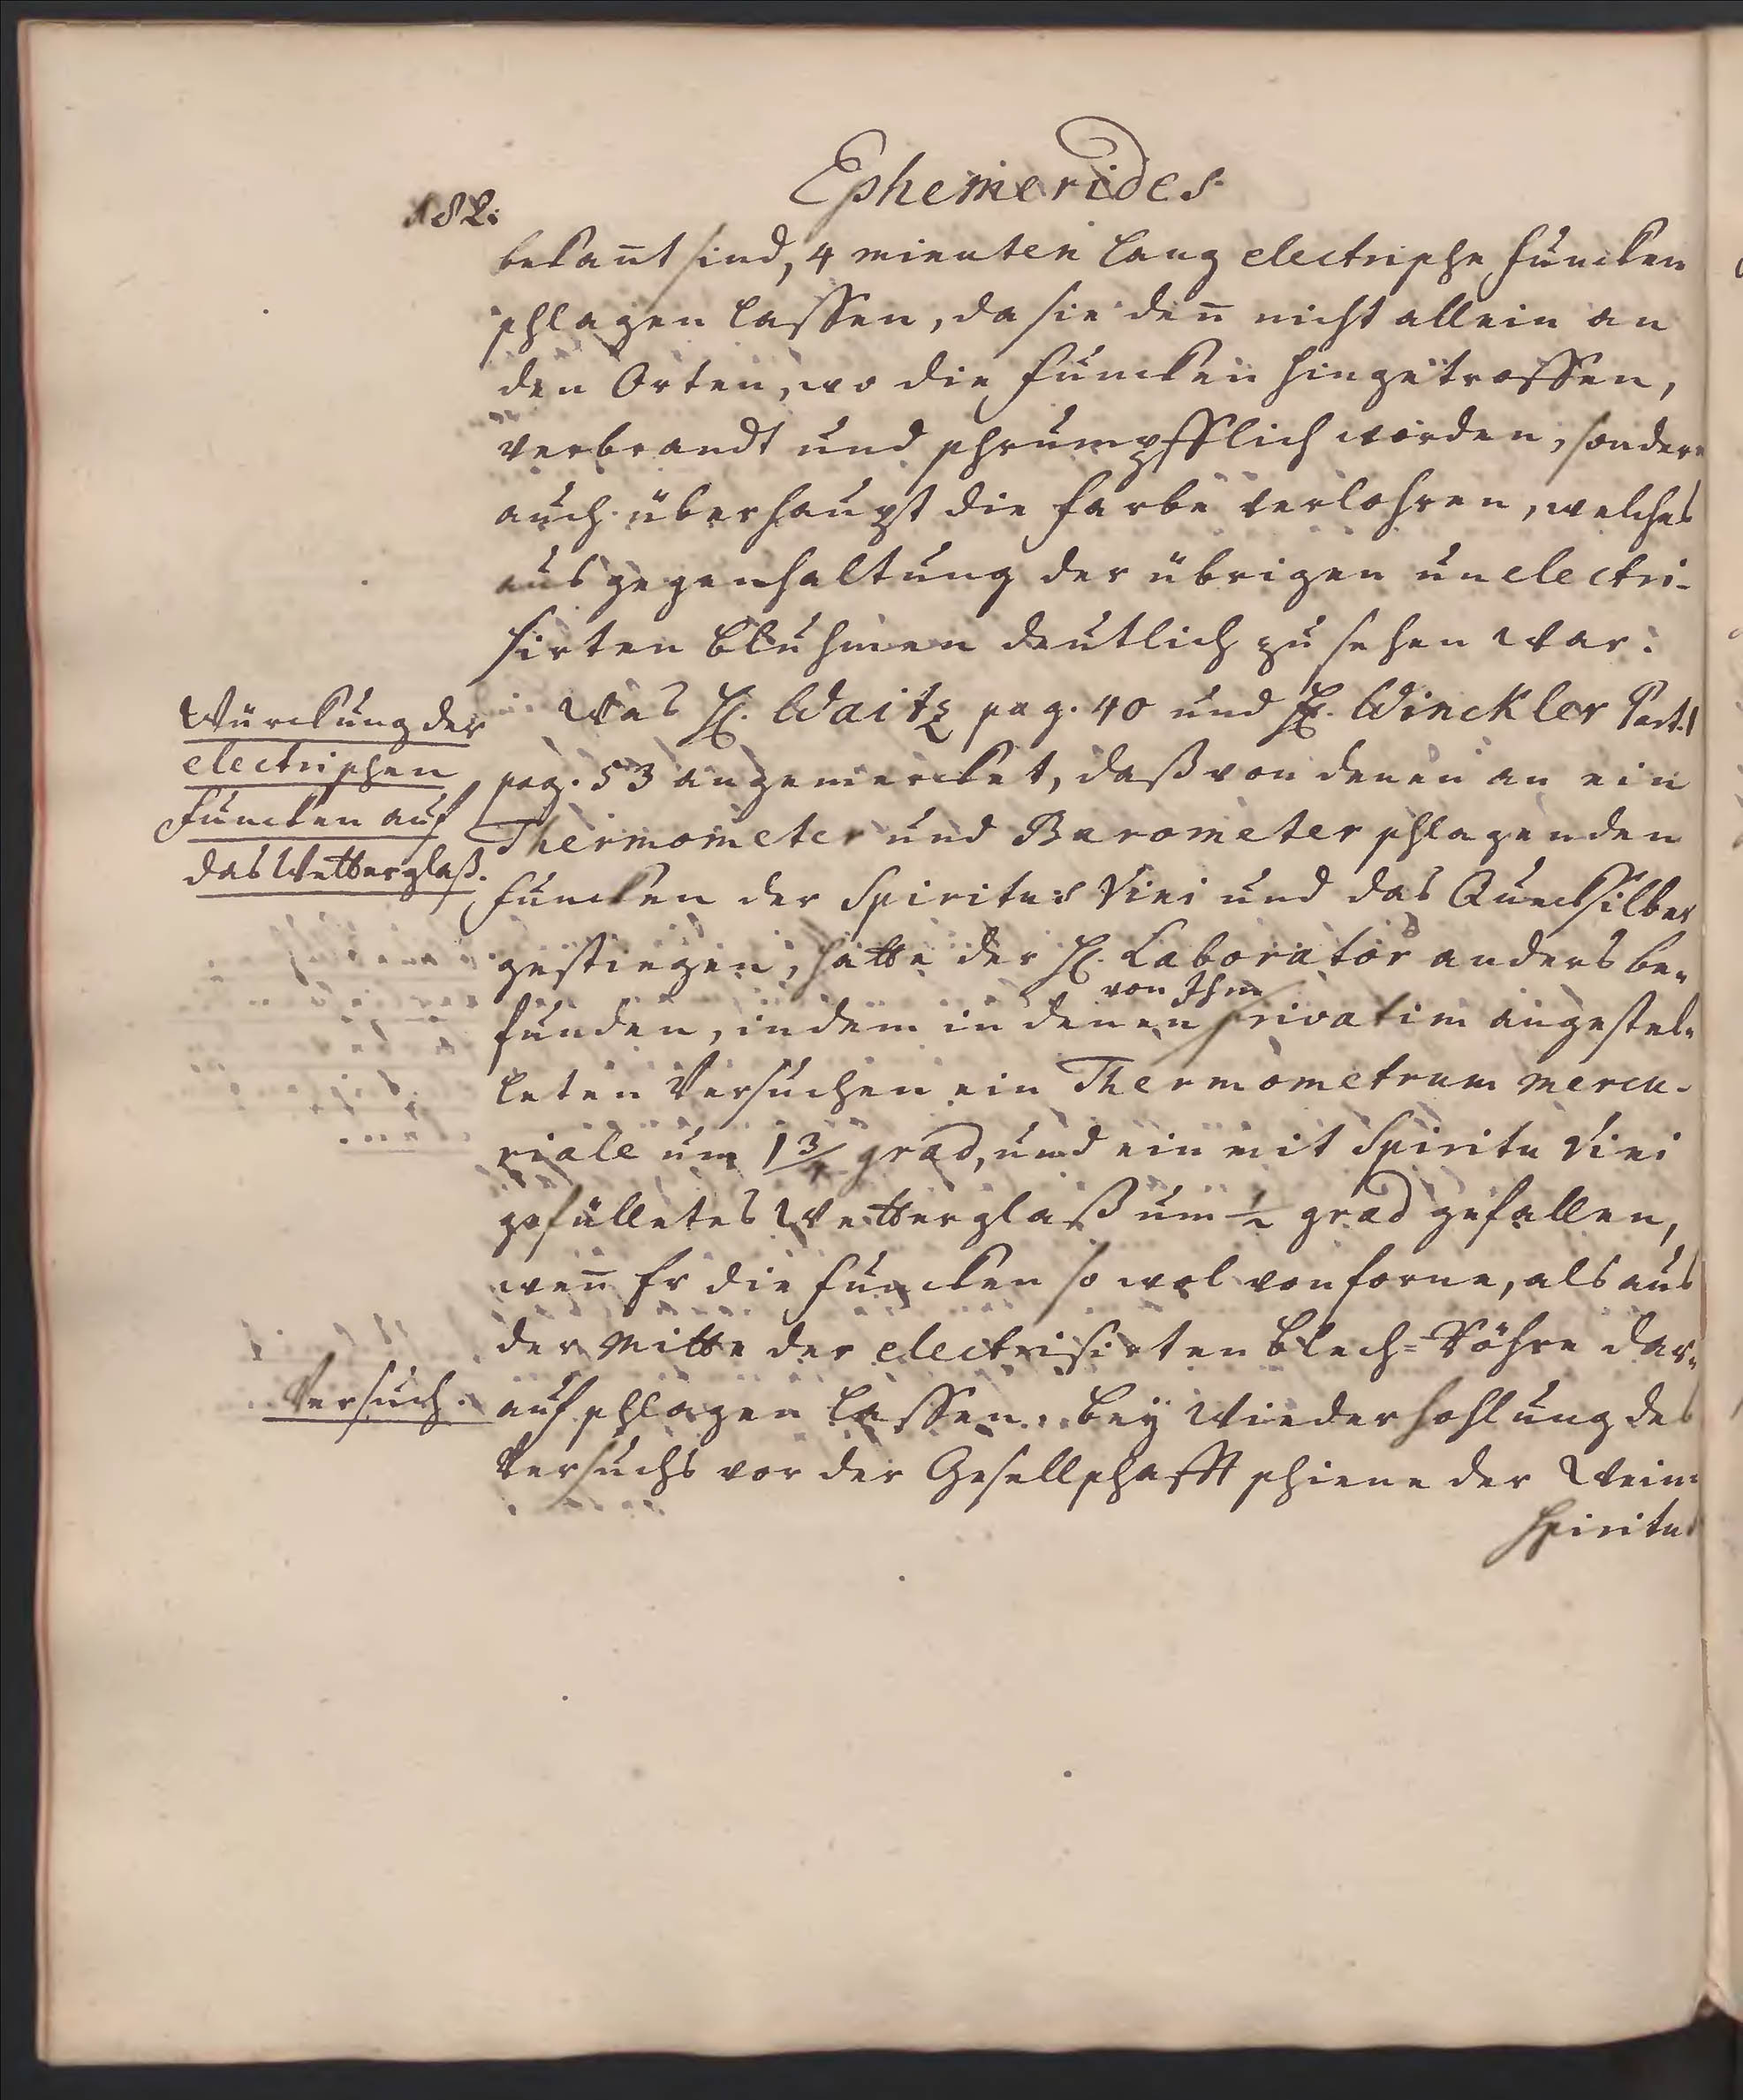 Ephemerides.
182.
bekan̄t sind, 4 minuten lang electrische Funcken
schlagen lassen, da sie den̄ nicht allein an
den Orten, wo die Funcken hingetroffen,
verbrandt und schrumpfflich worden, sondern
auch überhaupt die Farbe verlohren, welches
aus gegenhaltung der übrigen unelectri-
sirten Bluhmen deutlich zu sehen war.
Würckung der
electrischen
Funcken auf
das Wetterglaß.
Was H. Waitz pag. 40 und H. Winckler Part. I
pag. 53 angemercket, daß von denen an ein
Thermometer und Barometer schlagenden
Funcken der Spiritus Vini und das Quecksilber
gestiegen, hatte der H. Laborator anders be-
von Ihm
funden, indem in denen privatim angestel-
leten Versuchen ein Thermometrum mercu-
riale um 1 3/4 grad, und ein mit Spiritu Vini
gefülletes Wetterglaß um 1/2 grad gefallen,
wen̄ Er die Funcken so wol von forne, als aus
der Mitte der electrisirten Blech-Röhre dar-
Versuch.
auf schlagen lassen. Bey Wiederhohlung des
Versuchs vor der Gesellschafft schiene der Wein-
Spiritus